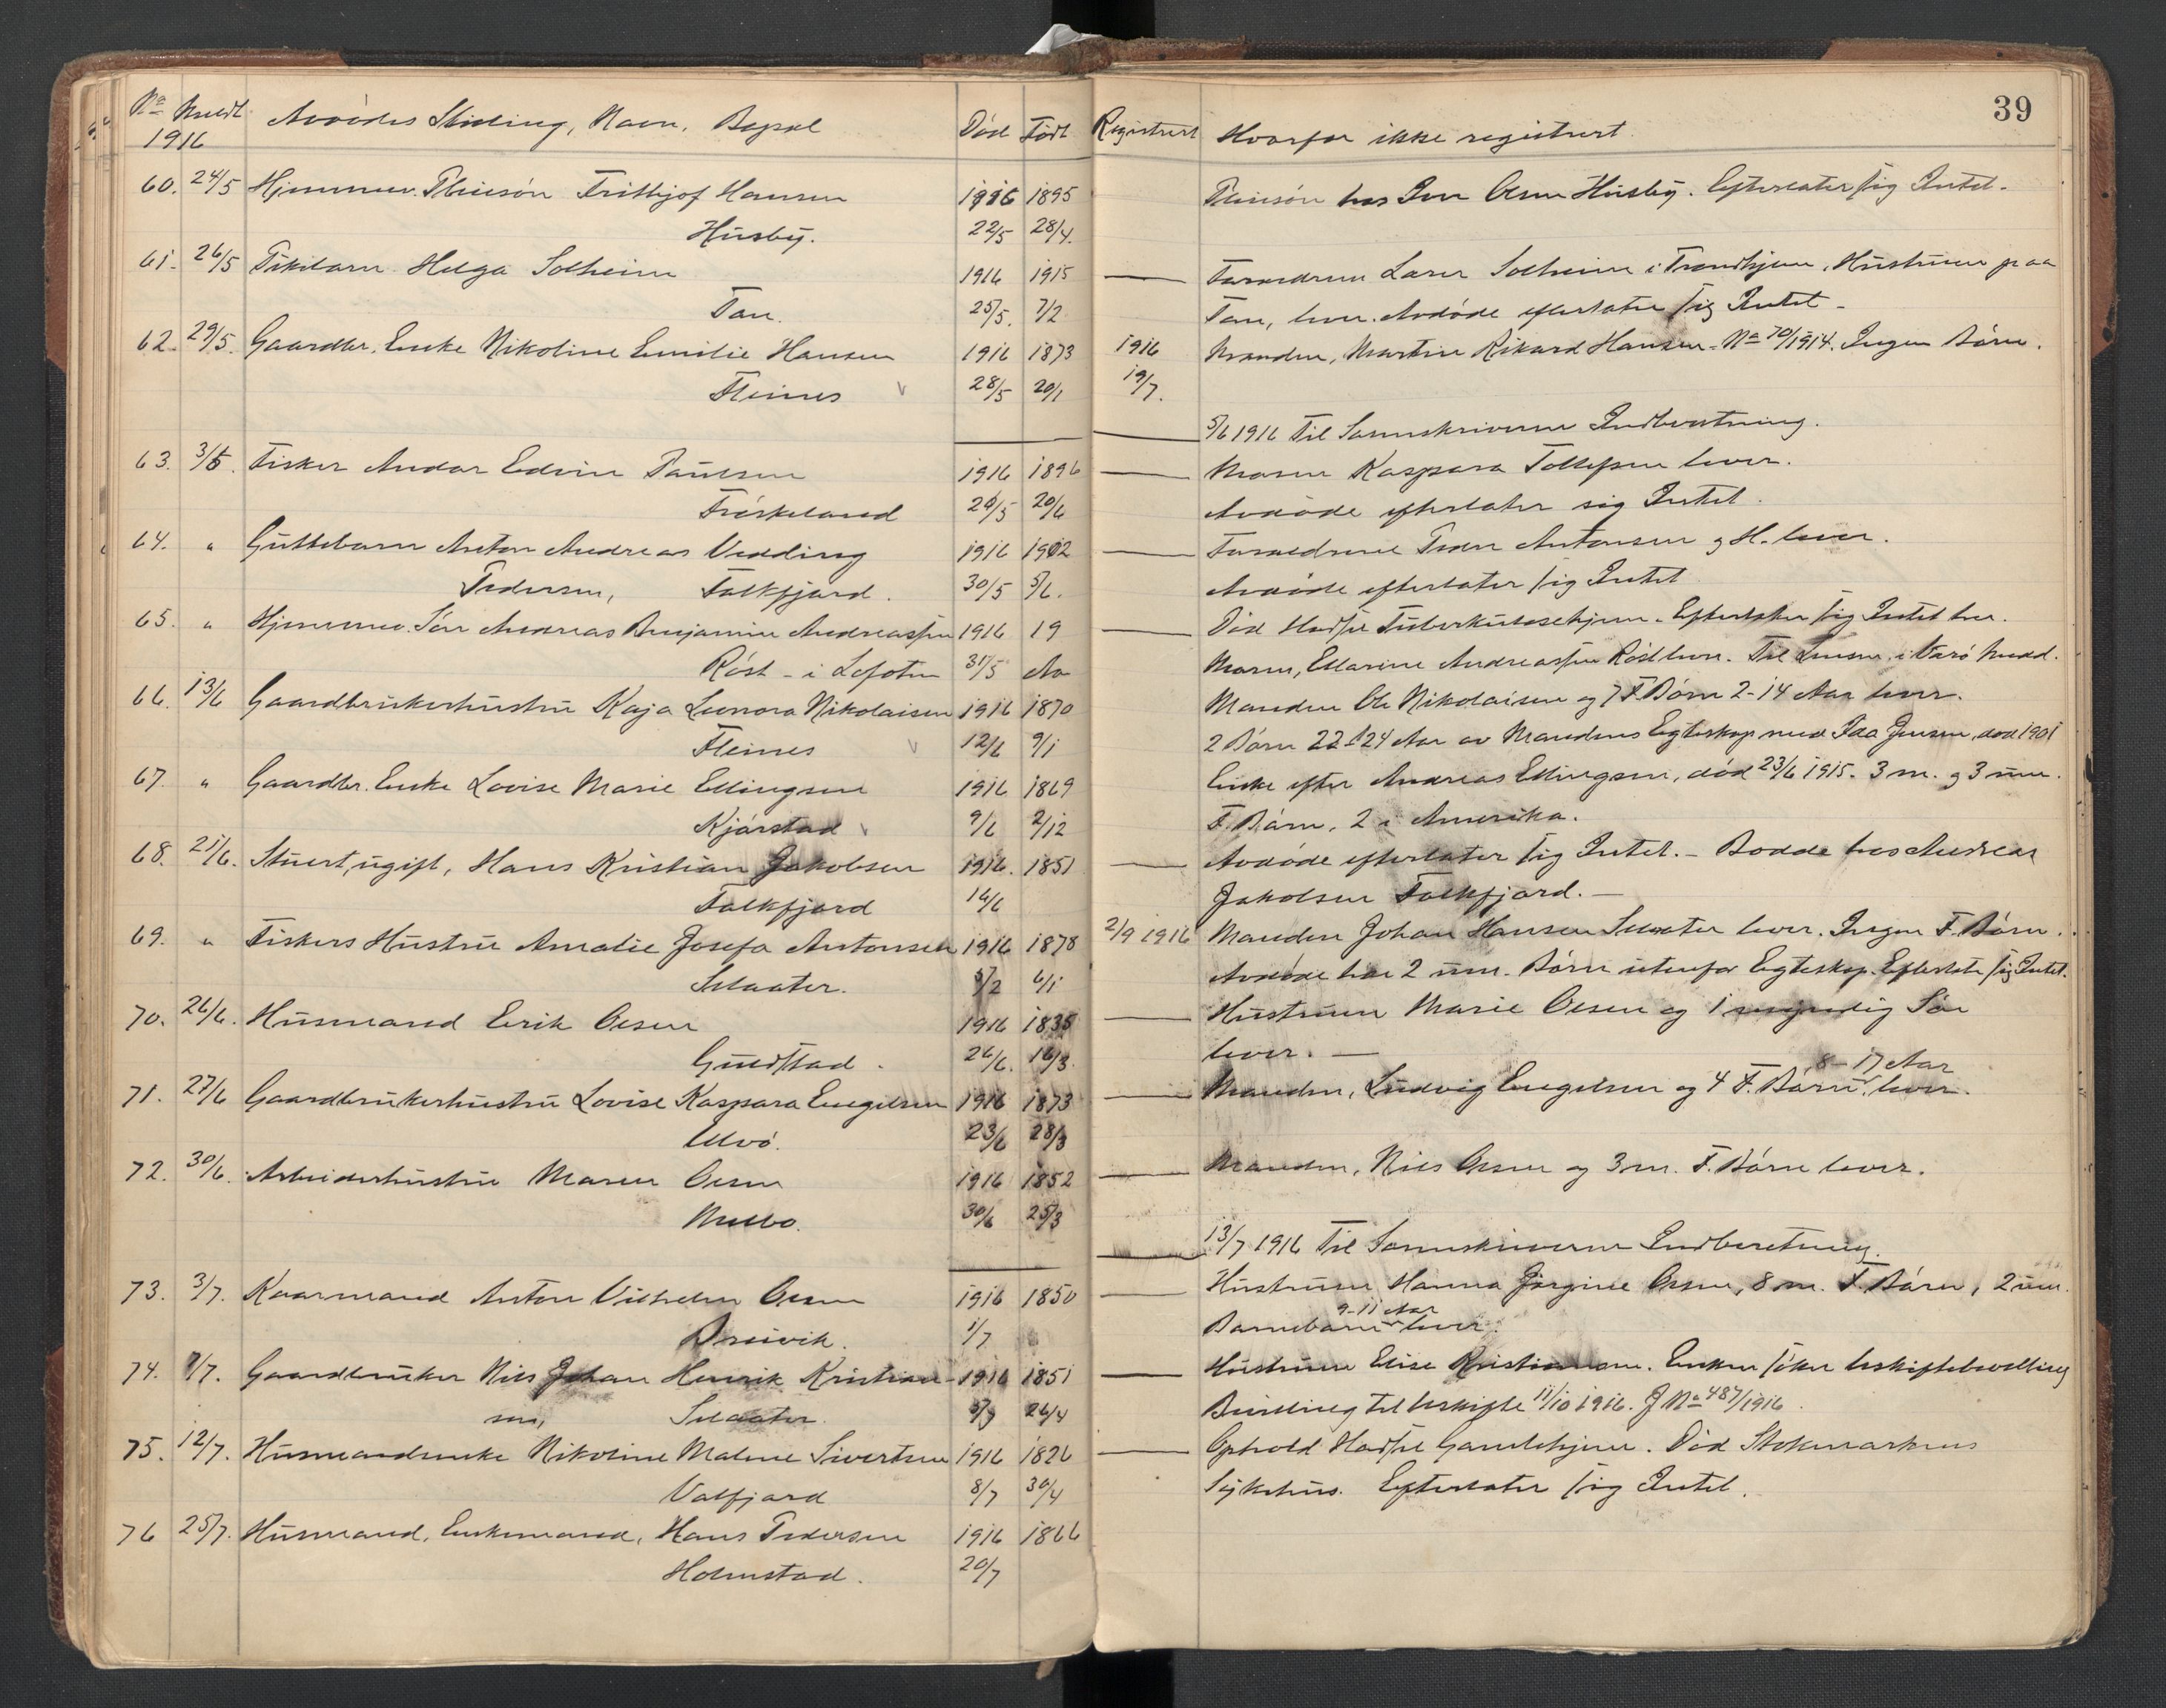 39
No Meldt Avdødes Stilling, Navn, Bopæl Død Født Registrert Hvorfor ikke registrert.
1916
60. 24/5 Hjemmev. Pleiesøn Frithjof Hansen 1916 1895 Pleiesøn hos Iver Olsen Husby. Efterlater sig Intet.
Husby. 22/5 28/4.
61. 26/5 Pikebarn Helga Solheim 1916 1915 Forældrene Laser Solheim i Trondhjem, Hustruen paa
Tan. 25/5. 7/2 Tan, lever. Avdøde efterlater sig Intet -
62. 29/5. Gaardbr. Enke Nikoline Emilie Hansen 1916 1873 1916 Manden, Martin Rikard Hansen. No 70/1914. Ingen Børn.
Steines 28/5 20/1 19/7.
5/6 1916 Til Sorenskriveren Indberetning.
63. 3/6. Fisker Andor Edvin Paulsen 1916 1896 Moren Kaspara Tollefsen lever.
Frøskeland 24/5 20/6 Avdøde efterlater sig Intet.
64. " Guttebarn Anton Andreas Vedding 1916 1902 Forældrene Peder Antonsen og H. lever.
Pedersen, Falkfjord. 30/5 5/6. Avdøde efterlater sig Intet
65. " Hjemmev. Søn Andreas Benjamin Andreassen 1916 19 Død Hadsel Tuberkulosehjem. Efterlater sig Intet her.
Røst - i Lofoten 31/5 Aar Moren, Ellarine Andreassen Røst lever. Til Lensm. i Værø Medd.
66. 13/6 Gaardbrukerhustru Kaja Leonora Nikolaisen 1916 1870 Manden Ole Nikolaisen og 7 F. Børn 2-14 Aar lever.
Steines 12/6 9/1 2 Børn 22 & 24 Aar av Mandens Egteskap med Ida Jensen, død 1901
67. " Gaardbr. Enke Lovise Marie Ellingsen 1916 1869 Enke efter Andreas Ellingsen, død 23/6 1915. 3 m. og 3 um.
Kjørstad 9/6 2/12 F. Børn, 2 i Amerika.
68. 21/6. Stuert, ugift, Hans Kristian Jakobsen 1916. 1851 Avdøde efterlater sig Intet. - Bodde hos Andreas
Falkfjord 16/6 Jakobsen Falkfjord. -
69. " Fiskers Hustru Amalie Josefa Antonsen 1916 1878 2/9 1916 Manden Johan Hansen Selnater lever. Ingen F. Børn.
5/2 6/1 Avdøde har 2 um. Børn utenfor Egteskap. Efterlater sig Intet.
70. 26/6. Husmand Erik Olsen 1916 1835 Hustruen Marie Olsen og 1 myndig Søn
Guldstad. 26/6. 16/3. lever. -
71. 27/6 Gaardbrukerhustru Lovise Kaspara Engelsen 1916 1873 Manden, Ludvig Engelsen og 4 F. Børn 8-17 Aar lever.
Ulvø. 23/6 28/3
72. 30/6. Arbeiderhustru Maren Olsen 1916 1852 Manden, Nils Olsen og 3 m. F. Børn lever.
Melbo. 30/6 25/3
13/7 1916 Til Sorenskriveren Indberetning.
73. 3/7. Kaarmand Anton Vilhelm Olsen 1916 1850 Hustruen Hanna Jørgine Olsen, 8 m. F. Børn, 2 um.
Breivik. 1/7 Barnebarn 9-11 Aar lever.
74. 7/7. Gaardbruker Nils Johan Henrik Kristian- 1916 1851 Hustruen Elise Kristiansen. Enken søker Uskiftebevilling
sen, 26/4 Bevilling til Uskifte 11/10 1916. J No 487/1916.
75. 12/7. Husmandsenke Nikoline Malene Sivertsen 1916 1826 Ophold Hadsel Gamlehjem. Død Stokmarknes
Valfjord 8/7 30/4 Sykehus. Efterlater sig Intet.
76 25/7. Husmand, Enkemand, Hans Pedersen 1916 1866
Holmstad. 20/7